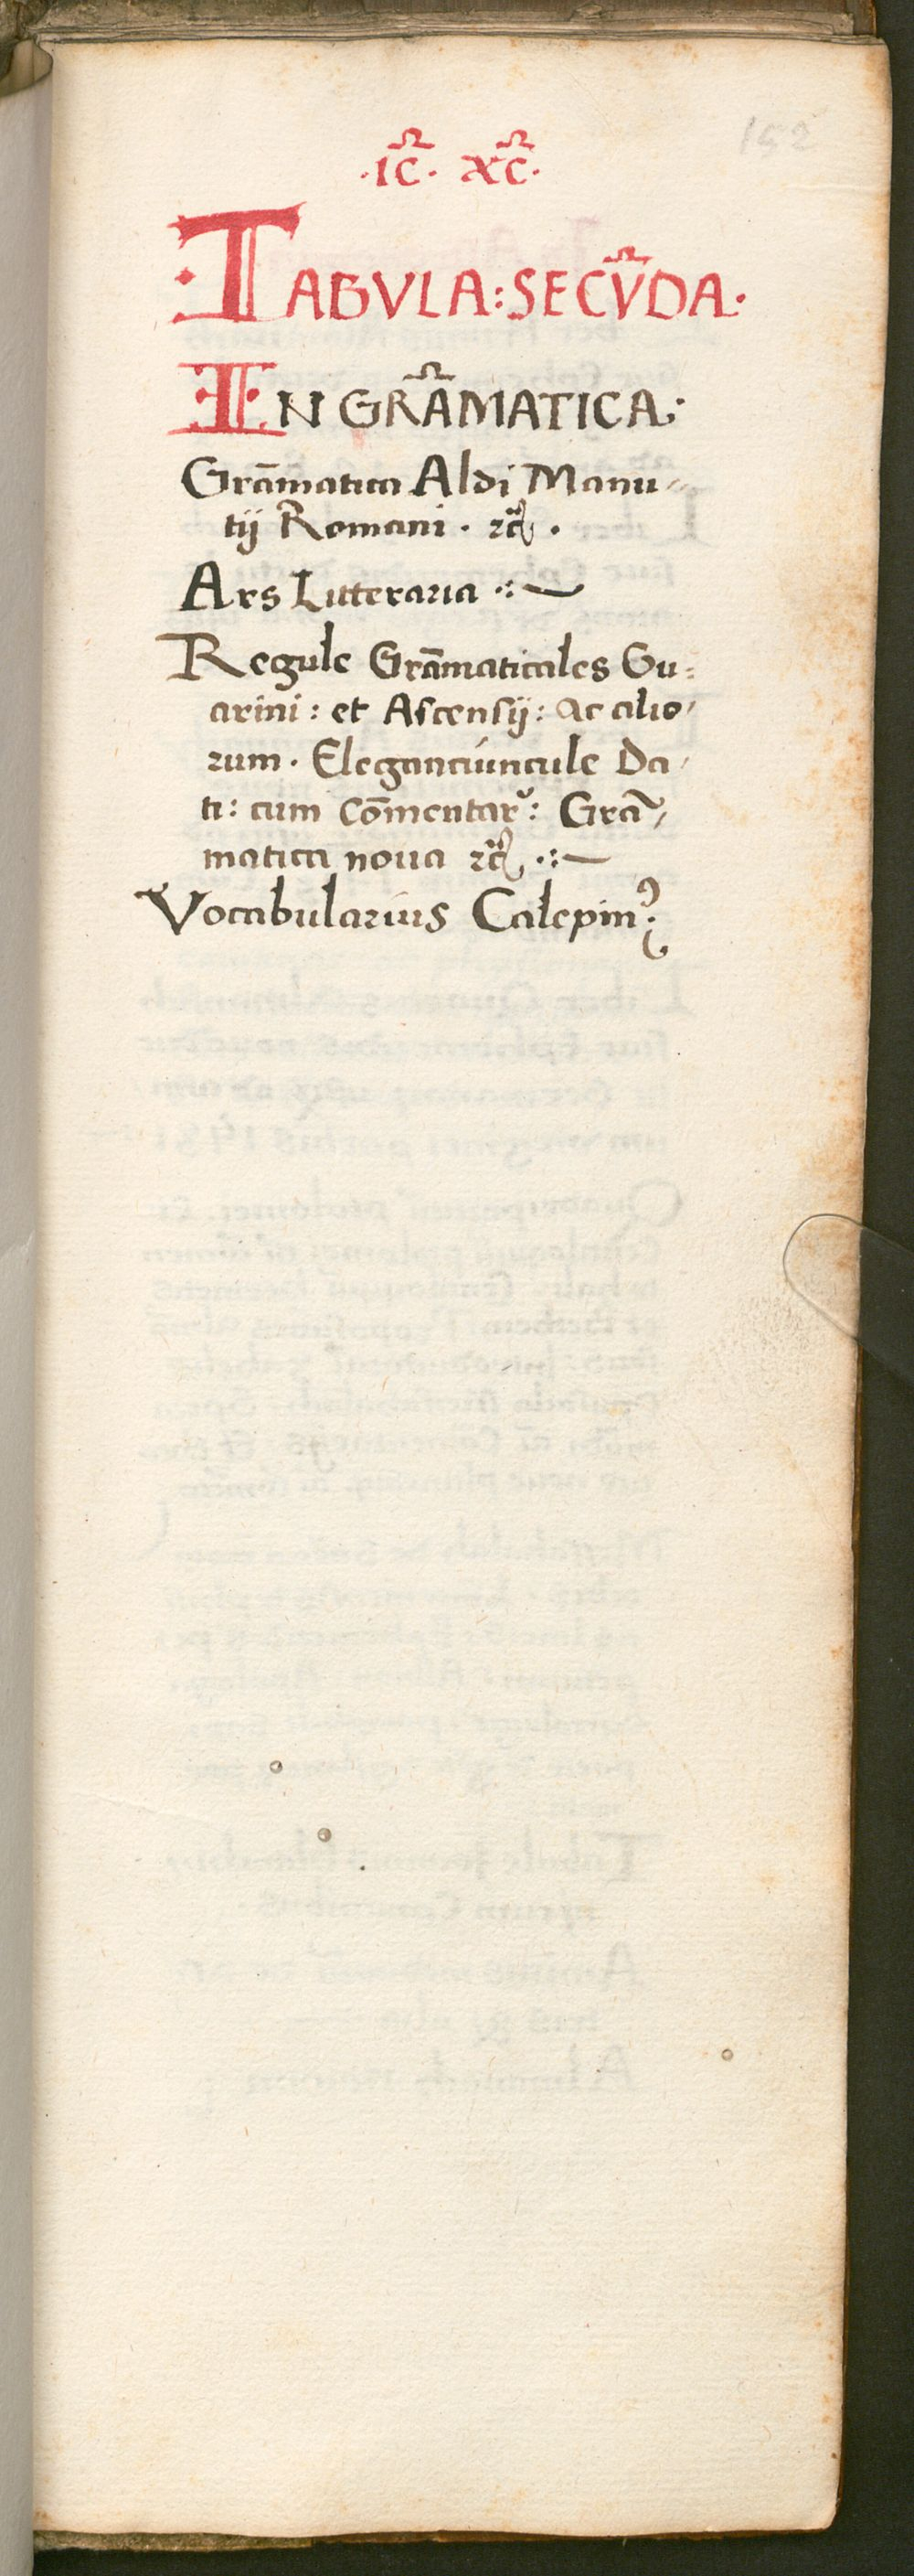 152
·IC̄· XC̄·
TABVLA:SECV̄DA·
IN GRĀMATICA:
Grāmatica Aldi Manu⸗
tij Romani · ⁊c̄ ·
Ars Litteraria
Regule Grāmaticales Gu⸗
arini : et Ascensij : ac alio⸗
rum · Eleganciuncule Da⸗
ti : cum Cōmentar : Grā⸗
matica noua ⁊c̄
Vocabularius Calepinꝰ